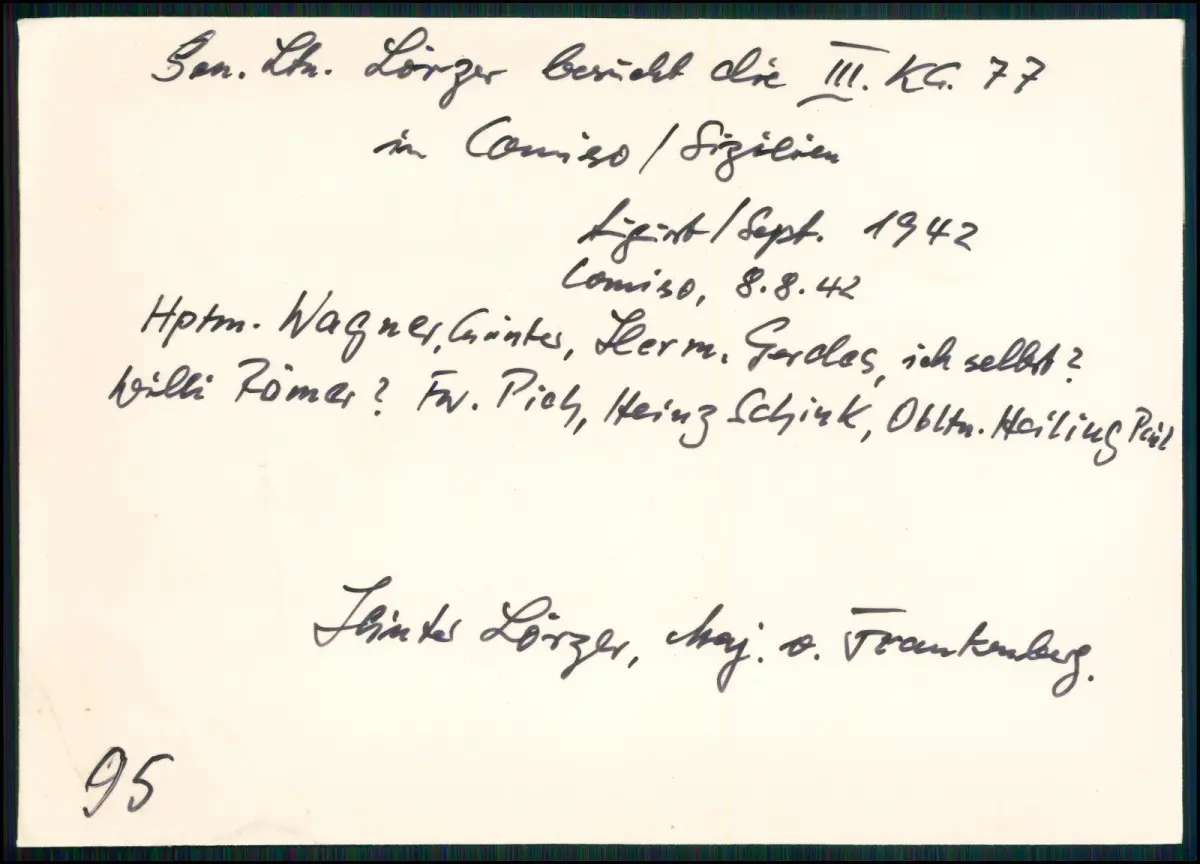 Gen. Ltn. Lörzer besucht die III. KG. 77
in Comiso / Sizilien
August / Sept. 1942
Comiso, 8.8.42
Hptm. Wagner, Günter, Herm. Gerdes, ich selbst?
Willi Römer? Fw. Pich, Heinz Schink, Obltn. Heiling Paul
Hinter Lörzer, Maj. v. Frankenberg.
95